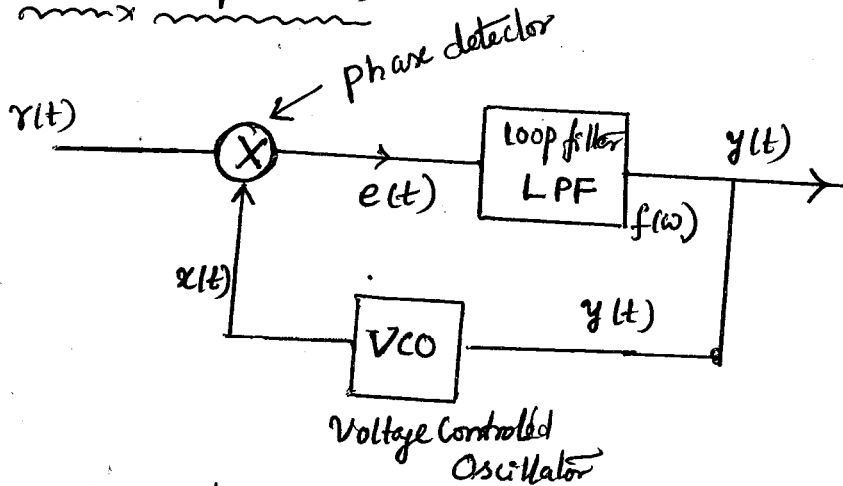 phase detector
r(t)
X
e(t)
Loop filter
LPF
f(ω)
y(t)
x(t)
VCO
y(t)
Voltage Controled
Oscillator